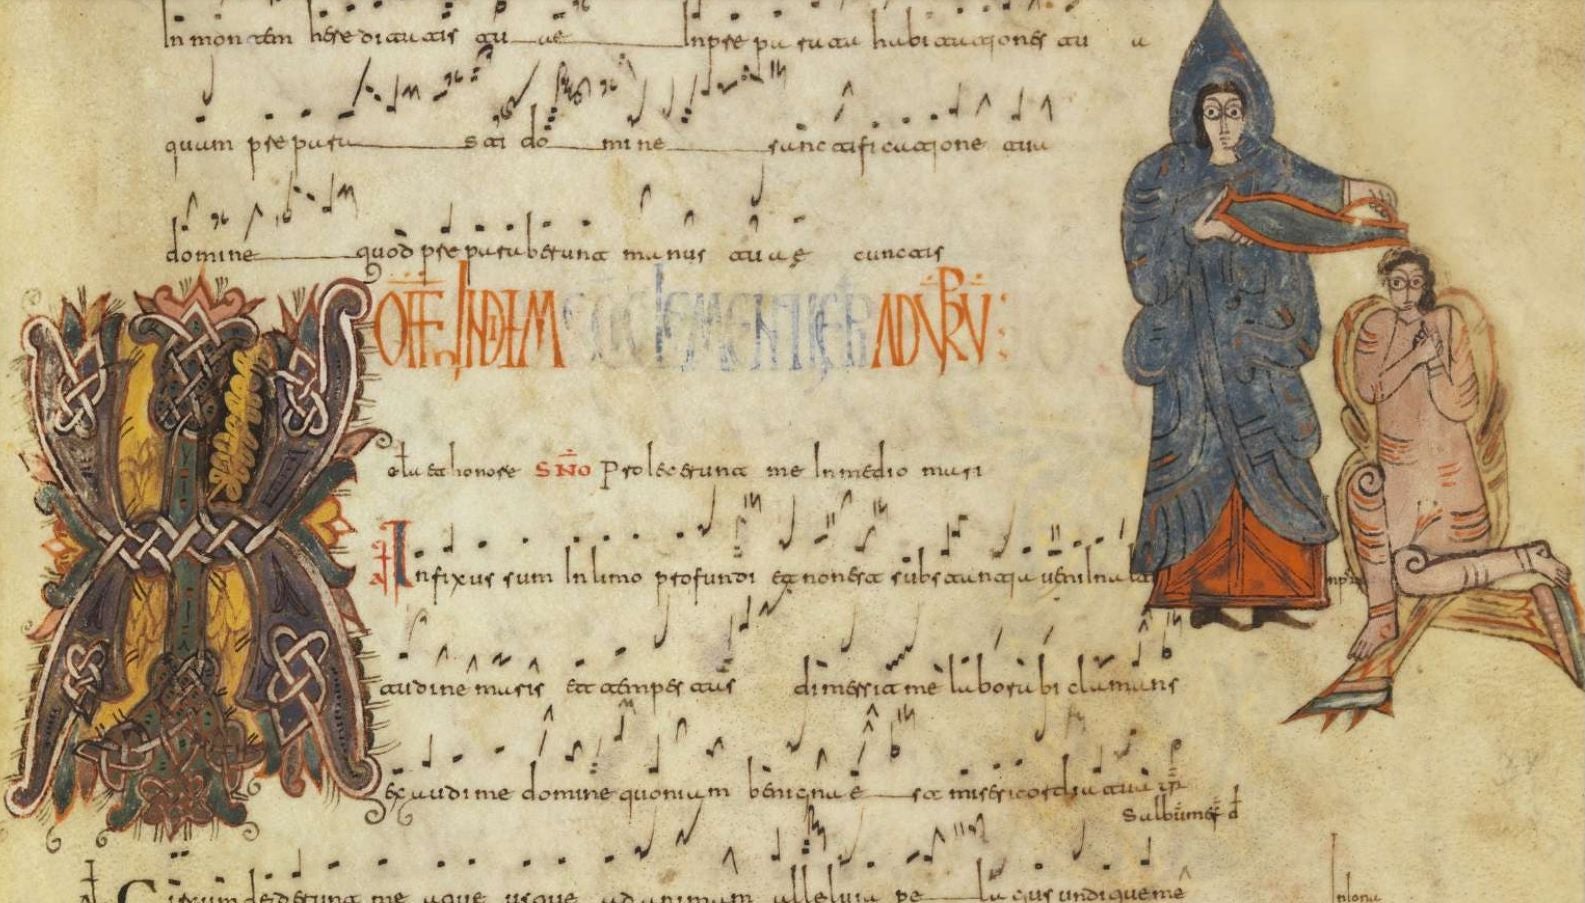 In montem hereditatis tu ae Inpre pa rata habitationes tu a
quam prepara sti do mi ne sanctificatione tua
domine quod preparaberunt manus tuaę cunctis
OFF IN DIEM SCI CLEMENTI AD
et honore SNO Proiecerunt me In medio mari
Infixus sum In limo profundi et non est substantia veni In
tudine maris et tempestas dimersit me laborabi clamans
exaudi me domine quoniam benigna e st misericordia tua
Circumdederunt me aque usque ad animam alleluia pe la gus undique me